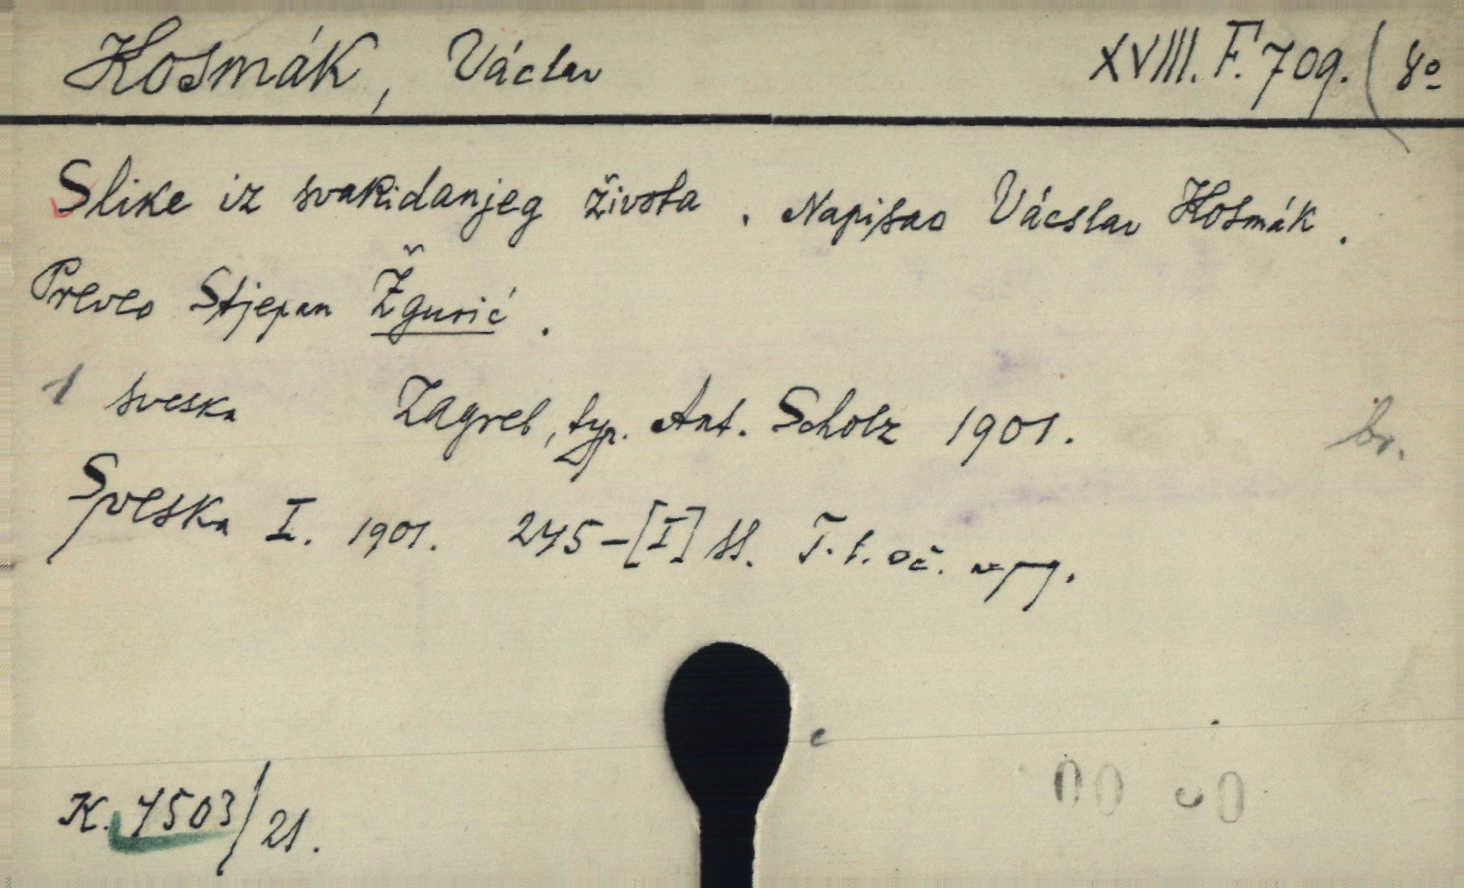 Kosmák, Václav XVIII. F. 709. ( 8o
Slike iz svakidanjeg života. Napisao Vácslav Kosmák.
Preveo Stjepan Žgurić.
1 sveska Zagreb, typ. Ant. Scholz 1901. br.
Sveska I. 1901. 245-[I] ss. T. t. oč.
K. 7503/21.